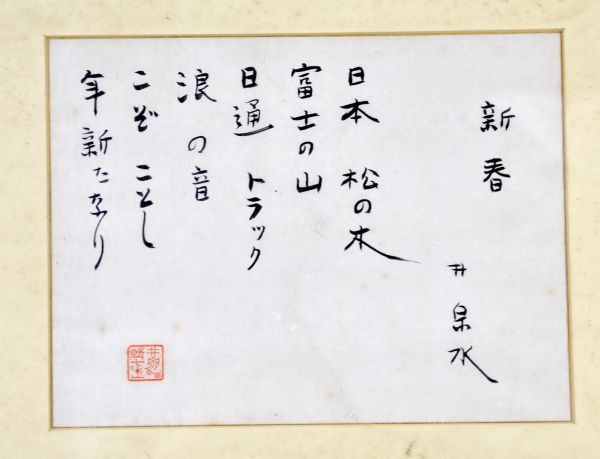 新春
井泉水
日本 松の木
富士の山
日通 トラック
浪の音
こぞ ことし
年新たなり